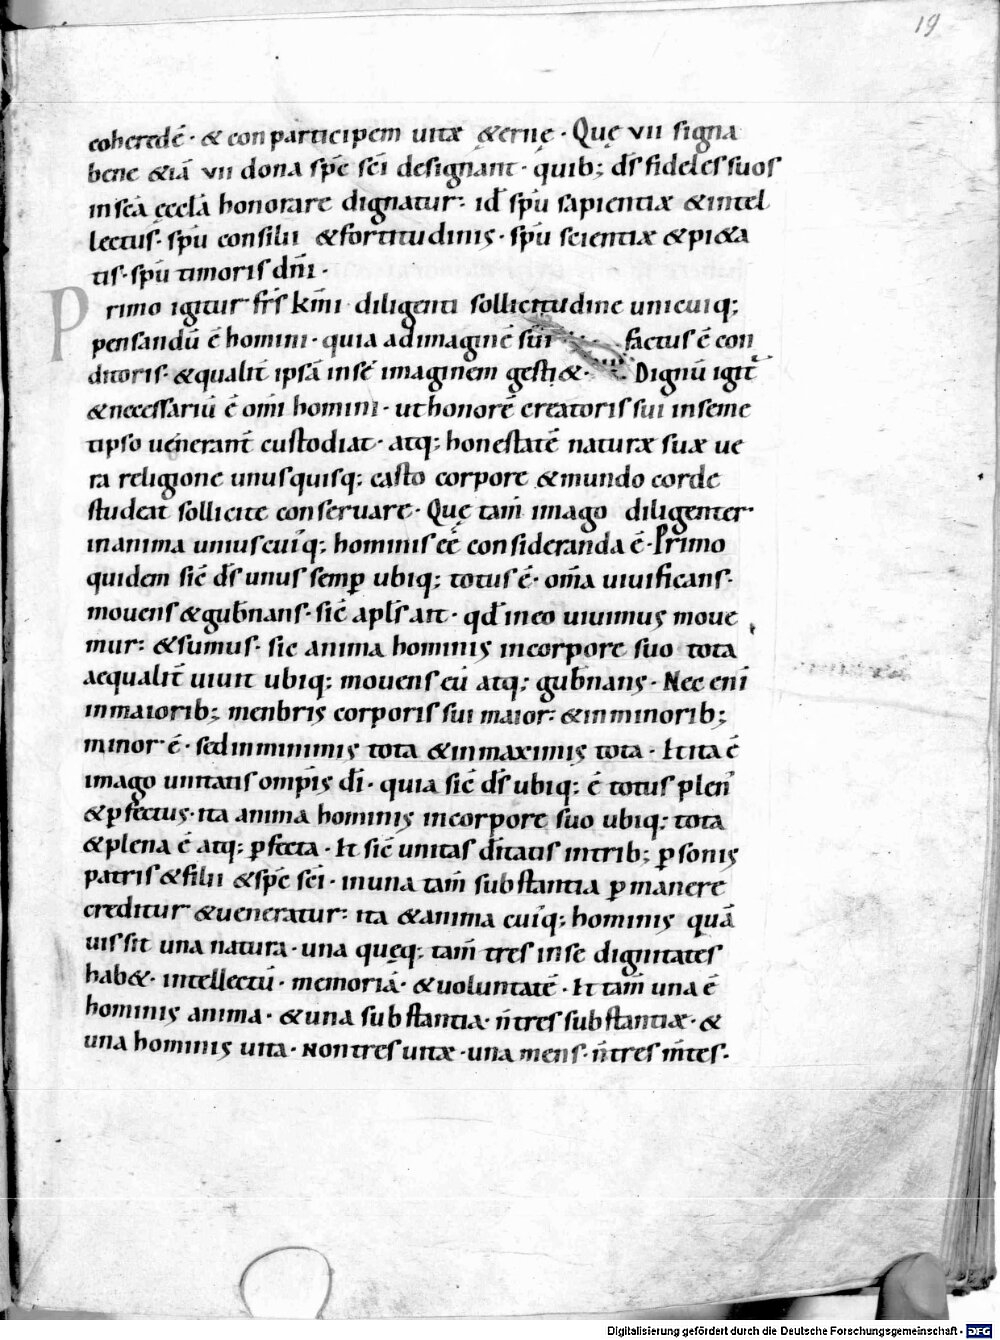 19
coheredē · & conparticipem uitæ &ernę · Quę vii signa
bene &iā vii dona sp̄c sc̄i designant · quib; d̄s fideles suos
in sc̄a ęccl̄a honorare dignatur: id̄ sp̄u sapientiæ & intel
lectus · sp̄u consilii & fortitudinis · sp̄u scientiæ & pi&a
tis · sp̄u timoris dn̄i ·
Primo igitur fr̄s km̄i diligenti sollicitudine unicuiq;
pensandū ē homini · quia ad imaginē sui factus ē con
ditoris · & qualit̄ ipsā in sē imaginem gesti& · Dignū igit̄
& necessariū ē om̄i homini · ut honorē creatoris sui in seme
tipso uenerant̄ custodiat · atq; honestatē naturæ suæ ue
ra religione unusquisq; casto corpore & mundo corde
studeat sollicite conseruare · Quę tam̄ imago diligenter
in anima uniuscuiq; hominis eē consideranda ē · Primo
quidem sic̄ d̄s unus semp̱ ubiq; totus ē · om̄a uiuificans ·
mouens & gub̄nans · sic̄ apl̄s ait · qd̄ in eo uiuimus moue
mur: & sumus · sic anima hominis in corpore suo tota
aequalit̄ uiuit ubiq; mouens eū atq; gub̄nans · Nec eni̅
in maiorib; menbris corporis sui maior: & in minorib;
minor ē · sed in minimis tota & in maximis tota · Et ita ē
imago unitatis omp̄is d̄i · quia sic̄ d̄s ubiq; ē totus plen᾽
& p̱fectus · ita anima hominis in corpore suo ubiq; tota
& plena ē atq; p̱fecta · Et sic̄ unitas d̄itatis in trib; p̱sonis
patris & filii & sp̄c sc̄i · in una tam̄ substantia p̱manere
creditur & ueneratur: ita & anima cuiq; hominis quā
uis sit una natura · una quęq; tam̄ tres in se dignitates
hab& · intellectū · memoriā · & uoluntatē · Et tam̄ una ē
hominis anima · & una substantia · n̄ tres substantiæ · &
una hominis uita · non tres uitæ · una mens · n̄ tres m̄tes ·
Digitalisierung gefördert durch die Deutsche Forschungsgemeinschaft - DFG